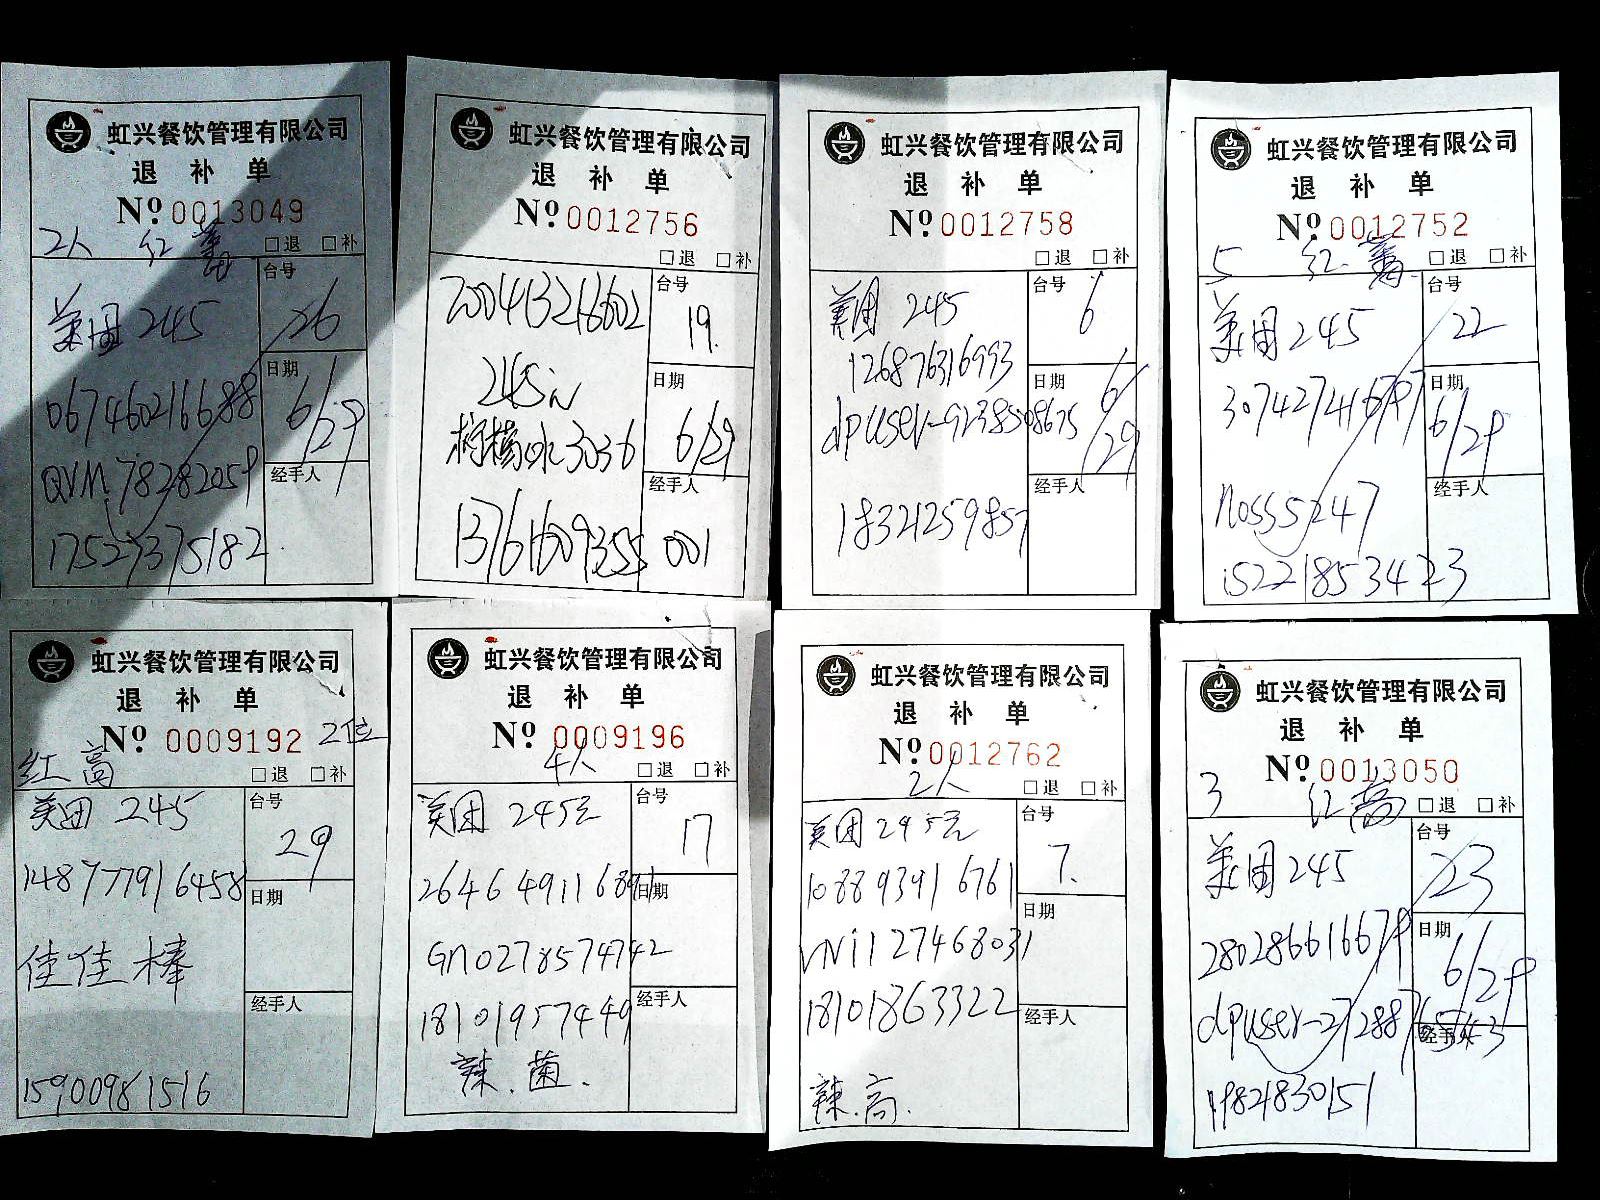 虹兴餐饮管理有限公司
退 补 单
Nº 0013049
2人 红
□退 □补
美团 245
台号 26
067460216688
日期 6/29
QVM78282059
经手人
17527375182
虹兴餐饮管理有限公司
退 补 单
Nº 0012756
□退 □补
200413216602
台号 19.
245元
日期 6/29
柠檬水3036
经手人
13761609355 001
虹兴餐饮管理有限公司
退 补 单
Nº 0012758
□退 □补
美团 245
台号 6
126876316993
日期 6/29
dpuser-9238508675
经手人
18321259857
虹兴餐饮管理有限公司
退 补 单
Nº 0012752
5 红
□退 □补
美团 245
台号 22
日期 6/29
noss5247
经手人
15221853423
虹兴餐饮管理有限公司
退 补 单
Nº 0009192 2位
红 高
□退 □补
美团 245
台号 29
148977916458
日期
佳佳棒
经手人
15900981516
虹兴餐饮管理有限公司
退 补 单
Nº 0009196
4人
□退 □补
美团 245元
台号 17
日期
Gno278574742
经手人
18101957449
辣.菌.
虹兴餐饮管理有限公司
退 补 单
Nº 0012762
2人
□退 □补
美团 245元
台号 7.
108893916761
日期
VNi127468031
18101863322
经手人
辣.高.
虹兴餐饮管理有限公司
退 补 单
Nº 0013050
3 红 高
□退 □补
美团 245
台号 23
280286616679
日期 6/29
经手人
19821830151